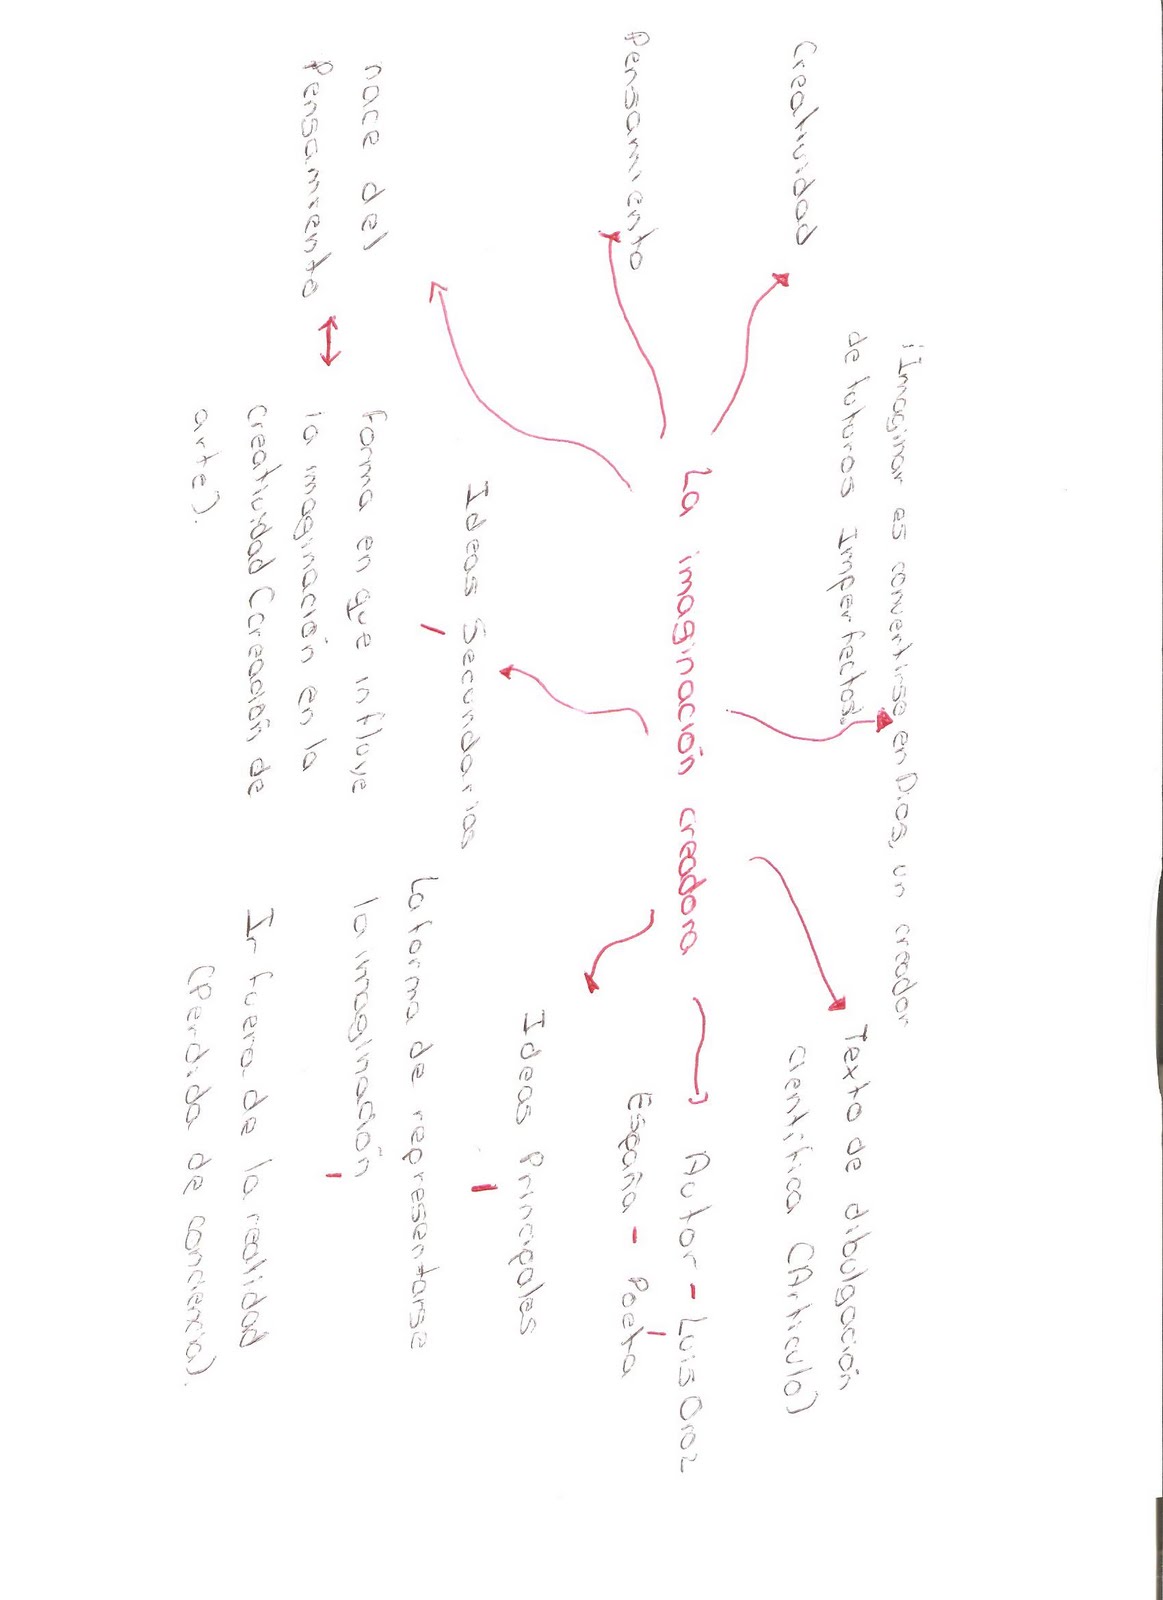 ¡Imaginar es convertirse en Dios, un creador
de futuros Imperfectos!
Creatividad
Texto de dibulgación
cientifica (Articulo)
Pensamiento
La imaginación creadora
Autor - Luis Oroz
España - Poeta
nace del
Pensamiento
Ideas Secundarias
forma en que influye
la imaginación en la
creatividad (creación de
arte).
Ideas Principales
La forma de representarse
la imaginación
Ir fuera de la realidad
(Perdida de conciencia).